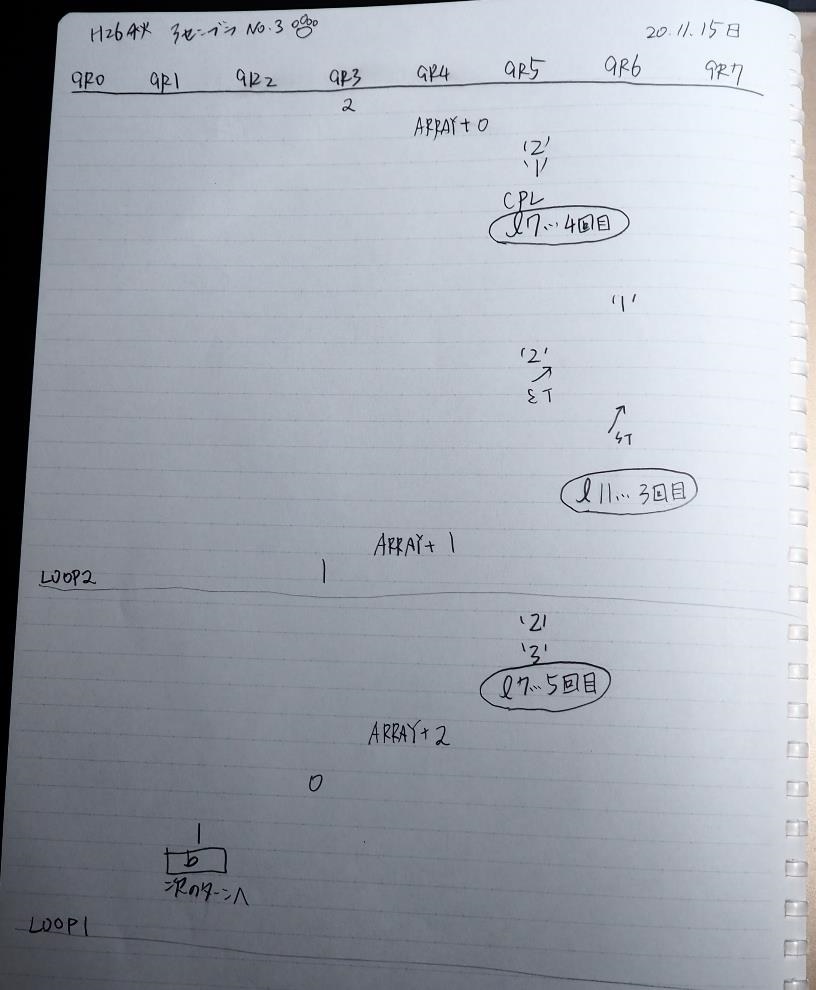 H26秋 アセンブラ No.3
20.11.15日
GR0 GR1 GR2 GR3 GR4 GR5 GR6 GR7
2
ARRAY+0
'2'
'1'
CPL
l7…4回目
'1'
'2'
ST
ST
l11…3回目
ARRAY+1
1
LOOP2
'2'
'3'
l7…5回目
ARRAY+2
0
1
b
次のターンへ
LOOP1